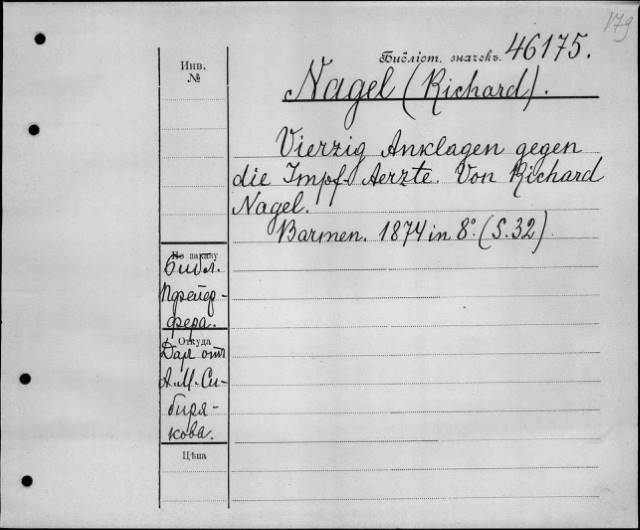 179
Инв.
№
Библіот. значекъ. 46175.
Nagel (Richard).
Vierzig Anklagen gegen
die Impf-Aerzte. Von Richard
Nagel.
Barmen. 1874 in 8º. (S. 32)
По
Библ.
Пфейф-
фера.
Откуда
Даръ отъ
А. М. Си-
биря-
кова.
Цѣна